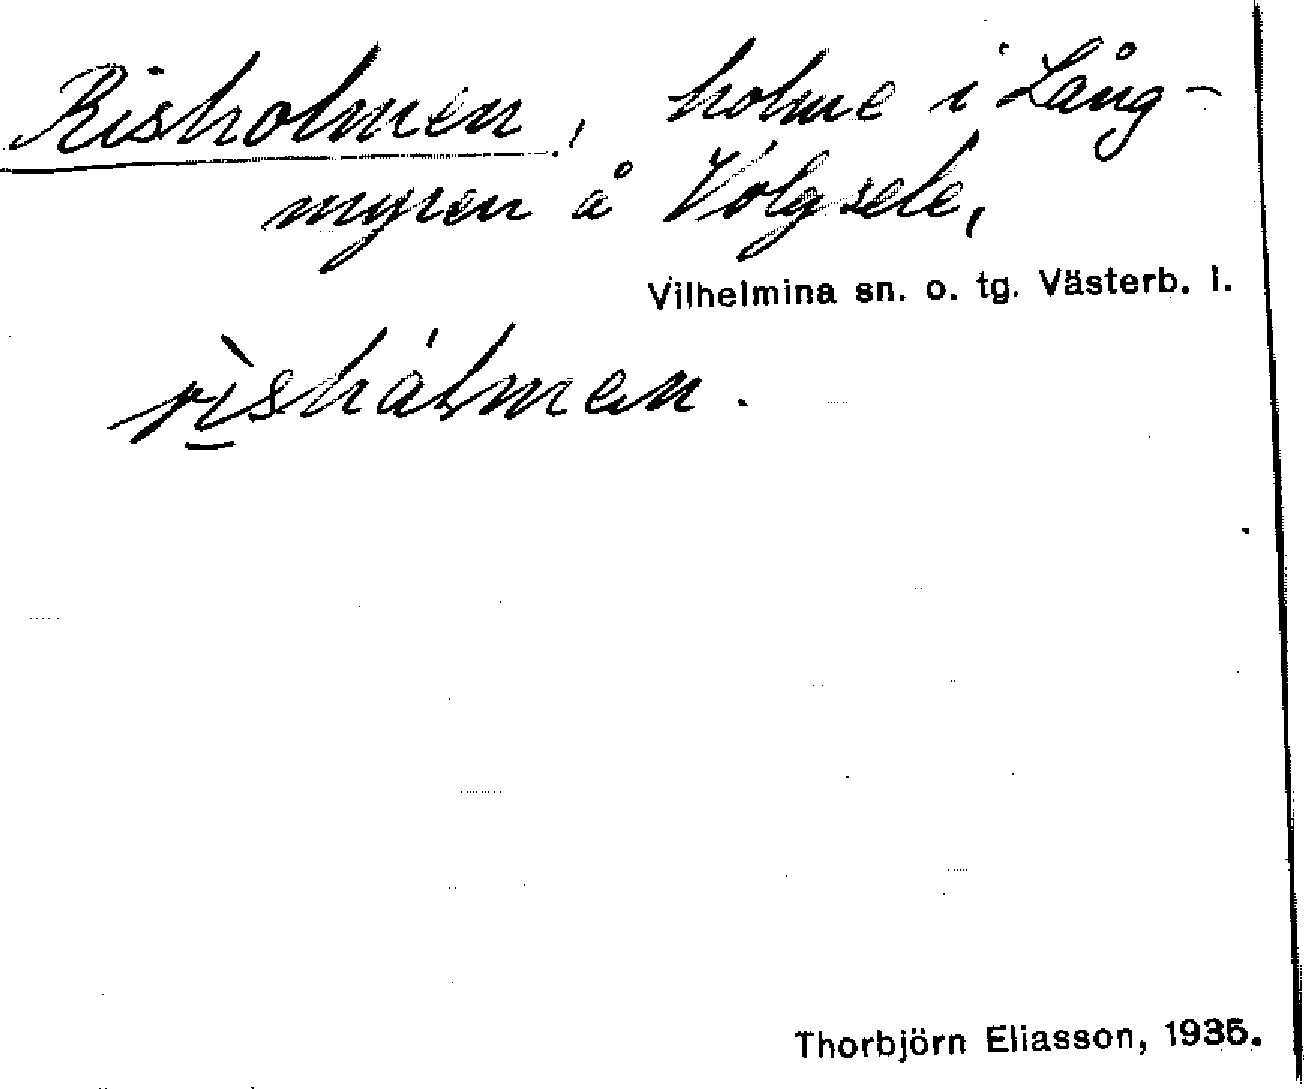 Risholmen, holme i Lång-
myren å Volgsele,
Vilhelmina sn. o. tg. Västerb. l.
rìshålmen.
Thorbjörn Eliasson, 1935.